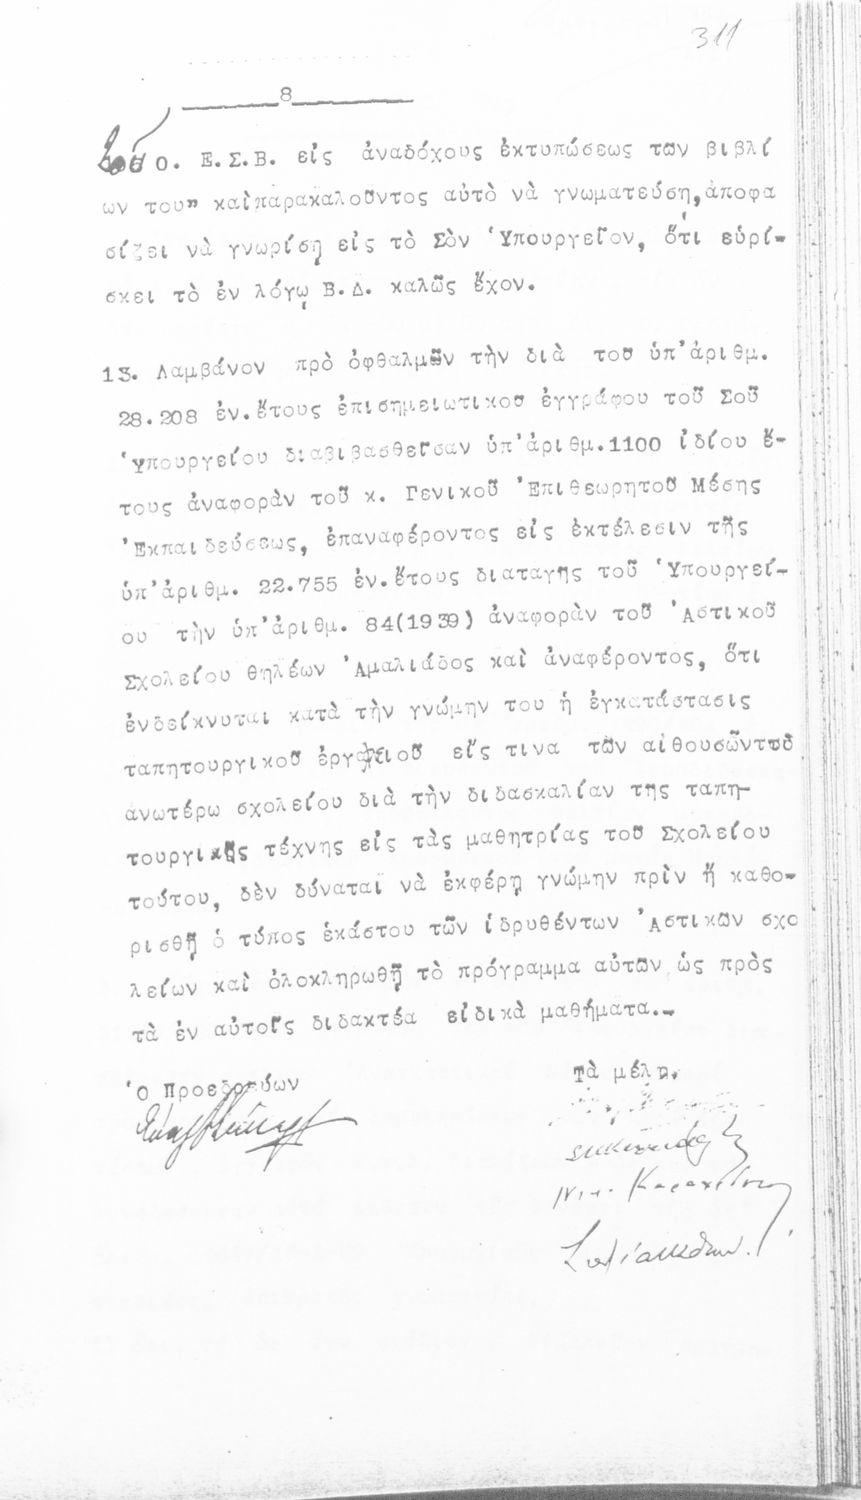 311
8
τοῦ Ο. Ε.Σ.Β. εἰς ἀναδόχους ἐκτυπώσεως των βιβλί
ων του" καὶπαρακαλοῦντος αὐτὸ νὰ γνωματεύσῃ,ἀποφα
σίζει νὰ γνωρίσῃ εἰς τὸ Σὸν Ὑπουργεῖον, ὅτι εὑρί-
σκει τὸ ἐν λόγῳ Β.Δ. καλῶς ἔχον.
13. Λαμβάνον πρὸ ὀφθαλμῶν τὴν διὰ του ὑπ'ἀριθμ.
28.208 ἐν.ἔτους ἐπισημειωτικου ἐγγράφου τοῦ Σοῦ
Ὑπουργείου διαβιβασθεῖσαν ὑπ'ἀριθμ.1100 ἰδίου ἔ-
τους ἀναφορὰν τοῦ κ. Γενικοῦ Ἐπιθεωρητοῦ Μέσης
Ἐκπαιδεύσεως, ἐπαναφέροντος εἰς ἐκτέλεσιν τῆς
ὑπ'ἀριθμ. 22.755 ἐν.ἔτους διαταγῆς τοῦ Ὑπουργεί-
ου τὴν ὑπ'ἀριθμ. 84(1939) ἀναφορὰν τοῦ Ἀστικοῦ
Σχολείου θηλέων Ἀμαλιάδος καὶ ἀναφέροντος, ὅτι
ἐνδείκνυται κατὰ τὴν γνώμην του ἡ ἐγκατάστασις
ταπητουργικοῦ ἐργαλειοῦ εἴς τινα τῶν αἰθουσῶντοῦ
ἀνωτέρω σχολείου διὰ τὴν διδασκαλίαν της ταπη-
τουργικῆς τέχνης εἰς τὰς μαθητρίας τοῦ Σχολείου
τούτου, δὲν δύναται νὰ ἐκφέρῃ γνώμην πρὶν ἤ καθο-
ρισθῇ ὁ τύπος ἑκάστου τῶν ἱδρυθέντων Ἀστικῶν σχο
λείων καὶ ὁλοκληρωθῇ τὸ πρόγραμμα αὐτῶν ὡς πρὸς
τὰ ἐν αὐτοῖς διδακτέα εἰδικὰ μαθήματα.-
Ὁ Προεδρεύων
Τὰ μέλη.